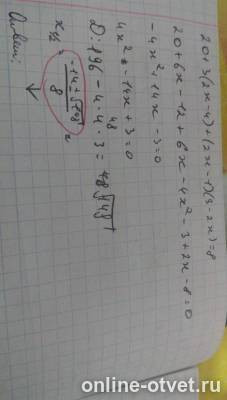 20+3(2x-4)+(2x-1)(3-2x)=8
20+6x-12+6x-4x²-3+2x-8=0
-4x²+14x-3=0
4x²-14x+3=0
D:196-4·4·3=
48
x₁/₂=
8
Ответ:
online-otvet.ru